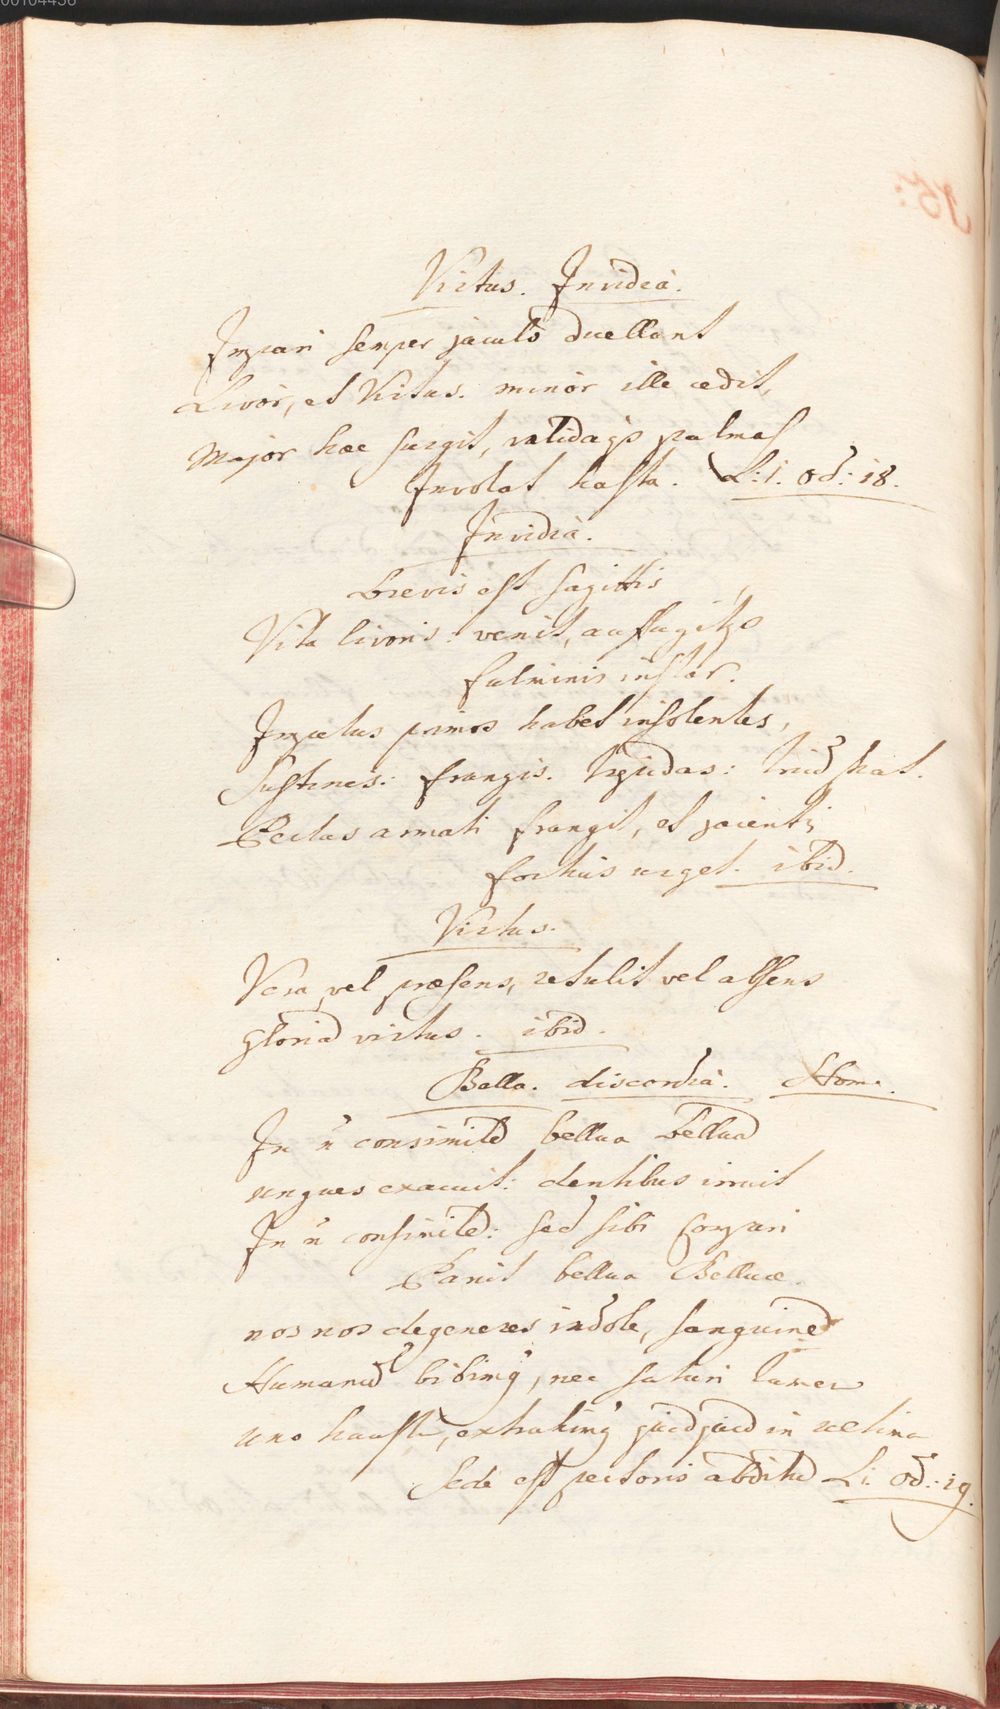 00104436
Virtus. Invidia.
Impari semper jaculo duellant
Livor, et Virtus. minor ille cedit,
Major hæc surgit, validaqȝ palmas
Involat hasta. L: 1. Od: 18.
Invidia.
Brevis est sagittis
Vita livoris: venit, auffugitqȝ
fulminis instar.
Impetus primos habet insolentes,
Sustines: frangis. trepidas:
Pectus armati frangit, et jacenti
fortius urget. ibid.
Virtus.
Vera vel præsens, retulit vel absens
gloriã virtus. ibid.
Bella. discordia. Hom:
In ñ consimilẽ bellua belluã
ungues exacuit: dentibus irruit
In ñ consimilẽ: sed sibi compari
Parcit bellua Belluæ.
nos nos degeneres indole, sanguinẽ
Humanũ bibimꝰ, nec saturi tamen
uno haustu, extrahimꝰ quidquid in ultima
Sede est pectoris abditũ L: Od: 19.